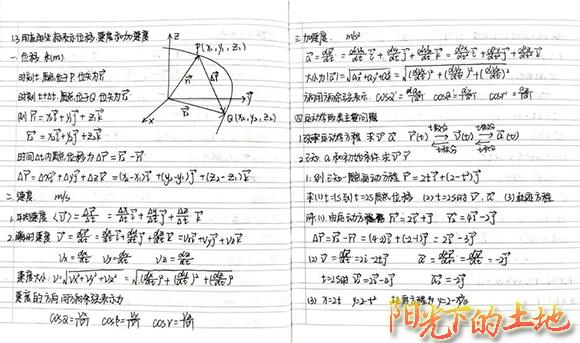 1.3 用直角坐标表示位移、速度和加速度
一.位移 米(m)
时刻t,质点位于P,位矢为r₁
时刻t+Δt,质点位于Q,位矢为r₂
则 r₁ = x₁i + y₁j + z₁k
r₂ = x₂i + y₂j + z₂k
时间Δt内质点位移为 Δr = r₂ - r₁
Δr = Δxi + Δyj + Δzk = (x₂-x₁)i + (y₂-y₁)j + (z₂-z₁)k
Z
P(x₁, y₁, z₁)
r₁
Δr
r₂
y
x
Q(x₂, y₂, z₂)
二.速度 m/s
1.平均速度 ⟨v⟩ = Δr/Δt = Δx/Δt i + Δy/Δt j + Δz/Δt k
2.瞬时速度 v = dr/dt = dx/dt i + dy/dt j + dz/dt k = vxi + vyj + vzk
vx = dx/dt vy = dy/dt vz = dz/dt
速度大小: v = √(vx² + vy² + vz²) = √((dx/dt)² + (dy/dt)² + (dz/dt)²)
速度的方向用方向余弦表示为
cosα = vx/|v| cosβ = vy/|v| cosγ = vz/|v|
三.加速度 m/s²
a = dv/dt = dvx/dt i + dvy/dt j + dvz/dt k = d²x/dt² i + d²y/dt² j + d²z/dt² k
大小为 |a| = √(ax² + ay² + az²) = √((d²x/dt²)² + (d²y/dt²)² + (d²z/dt²)²)
方向用方向余弦表示 cosα = ax/|a| cosβ = ay/|a| cosγ = az/|a|
四.运动学两类主要问题
1. 运动方程 求 v a r(t) v(t) a(t)
2. 已知 a 和初始条件 求 v r
1.例 已知一质点运动方程 r = 2ti + (2-t²)j
求(1) t=1s到t=2s质点位移 (2) t=2s时 v a (3) 轨迹方程
解:(1) 由运动方程得 r₁ = 2i + j r₂ = 4i - 2j
Δr = r₂ - r₁ = (4-2)i + (-2-1)j = 2i - 3j
(2) v = dr/dt = 2i - 2tj a = dv/dt = -2j
t=2s时 v₂ = 2i - 4j a₂ = -2j
(3) x=2t y=2-t² 轨迹方程为 y=2-x²/4
阳光下的土地